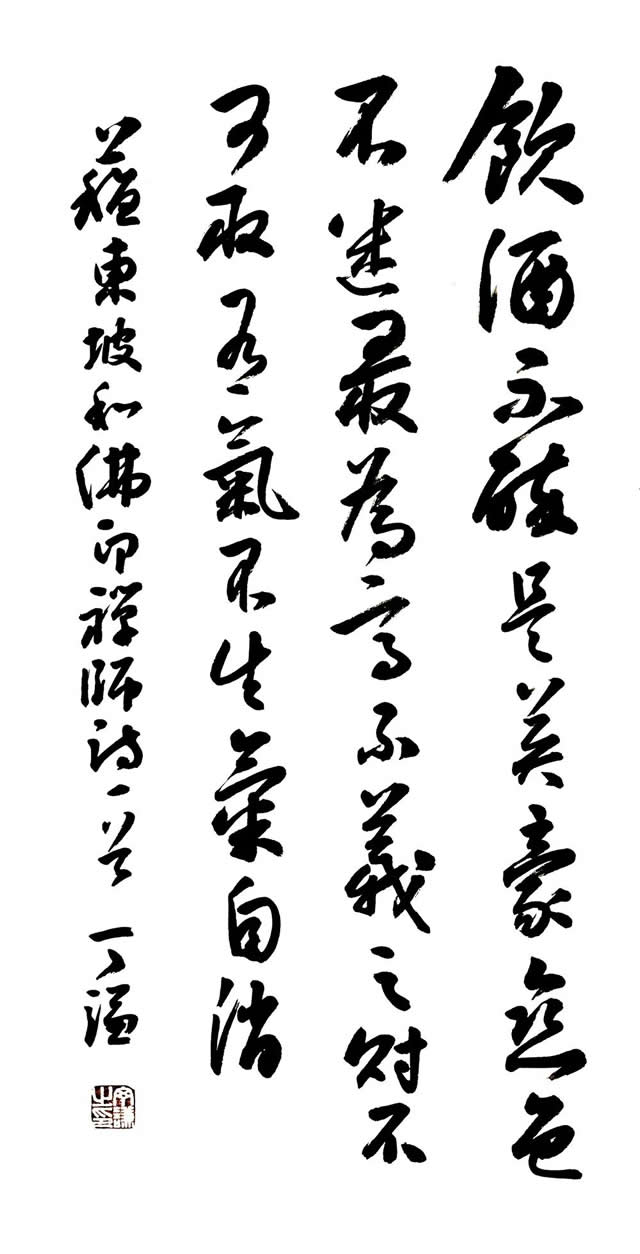 飲酒不醉是英豪戀色
不迷最為高不義之財不
可取有氣不生氣自消
蘇東坡和佛印禪師詩一首 丁